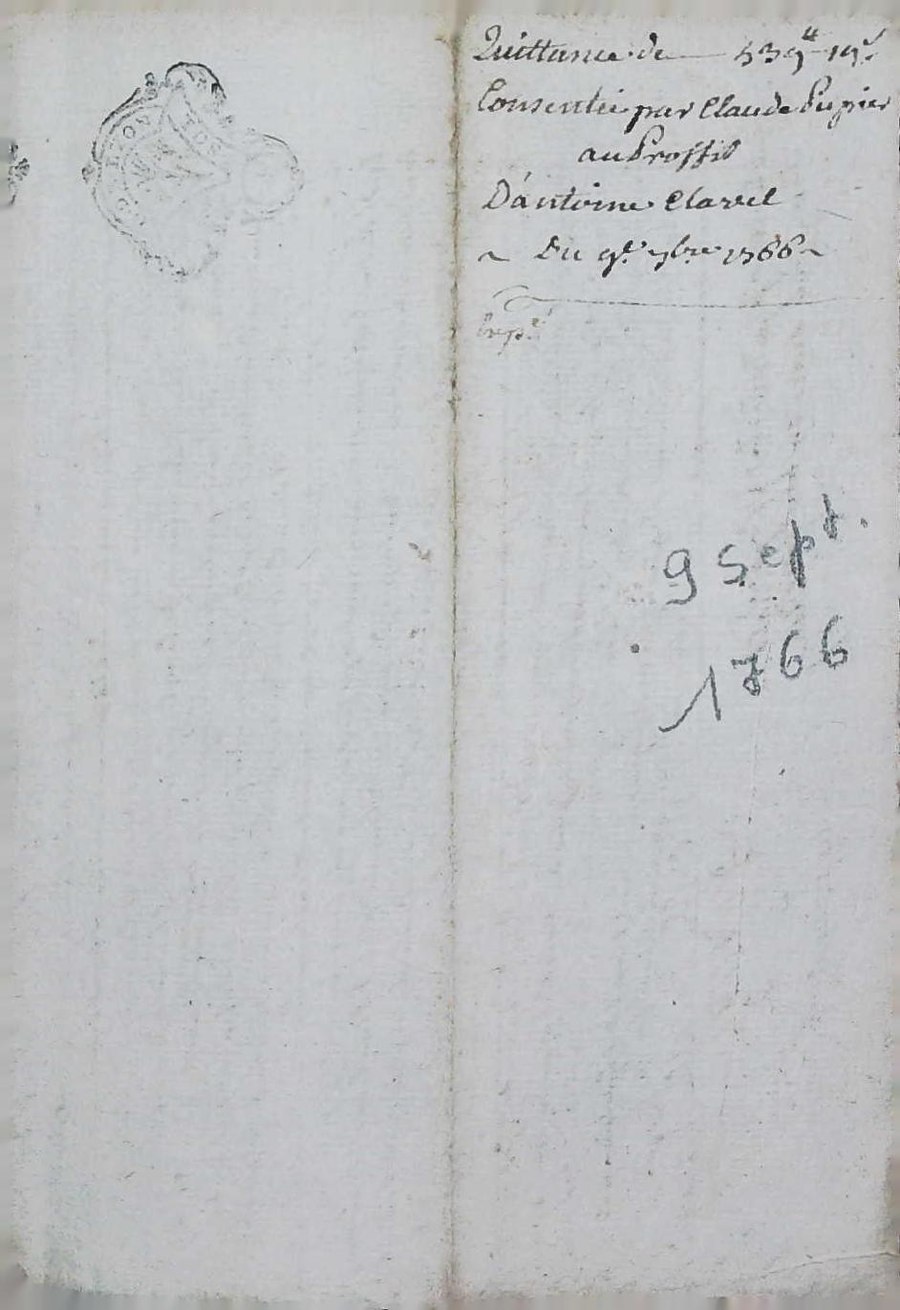 Quittance de 539# 19s
Consentie par Claude Pupier
au Proffit
D'antoine Clavel
~ Du 9e 7bre 1766 ~
Exp.é
9 Sept.
1766